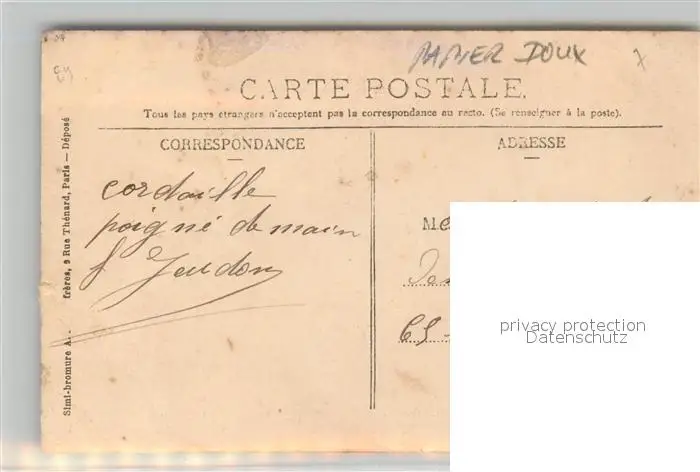 PAPIER DOUX
CARTE POSTALE.
Tous les pays étrangers n'acceptent pas la correspondance au recto. (Se renseigner à la poste).
CORRESPONDANCE
ADRESSE
cordaille
poigné de main
Simi-bromure A. frères, 9 Rue Thénard, Paris — Déposé
privacy protection
Datenschutz